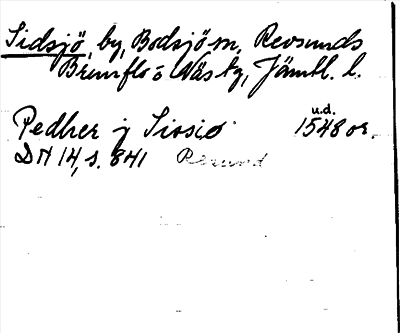 Sidsjö, by, Bodsjö sn, Revsunds
Brunflo o Näs tg, Jämtl. l.
u.d.
Pedher j Siosiø 1548 or.
DN 14, s. 841 Resund